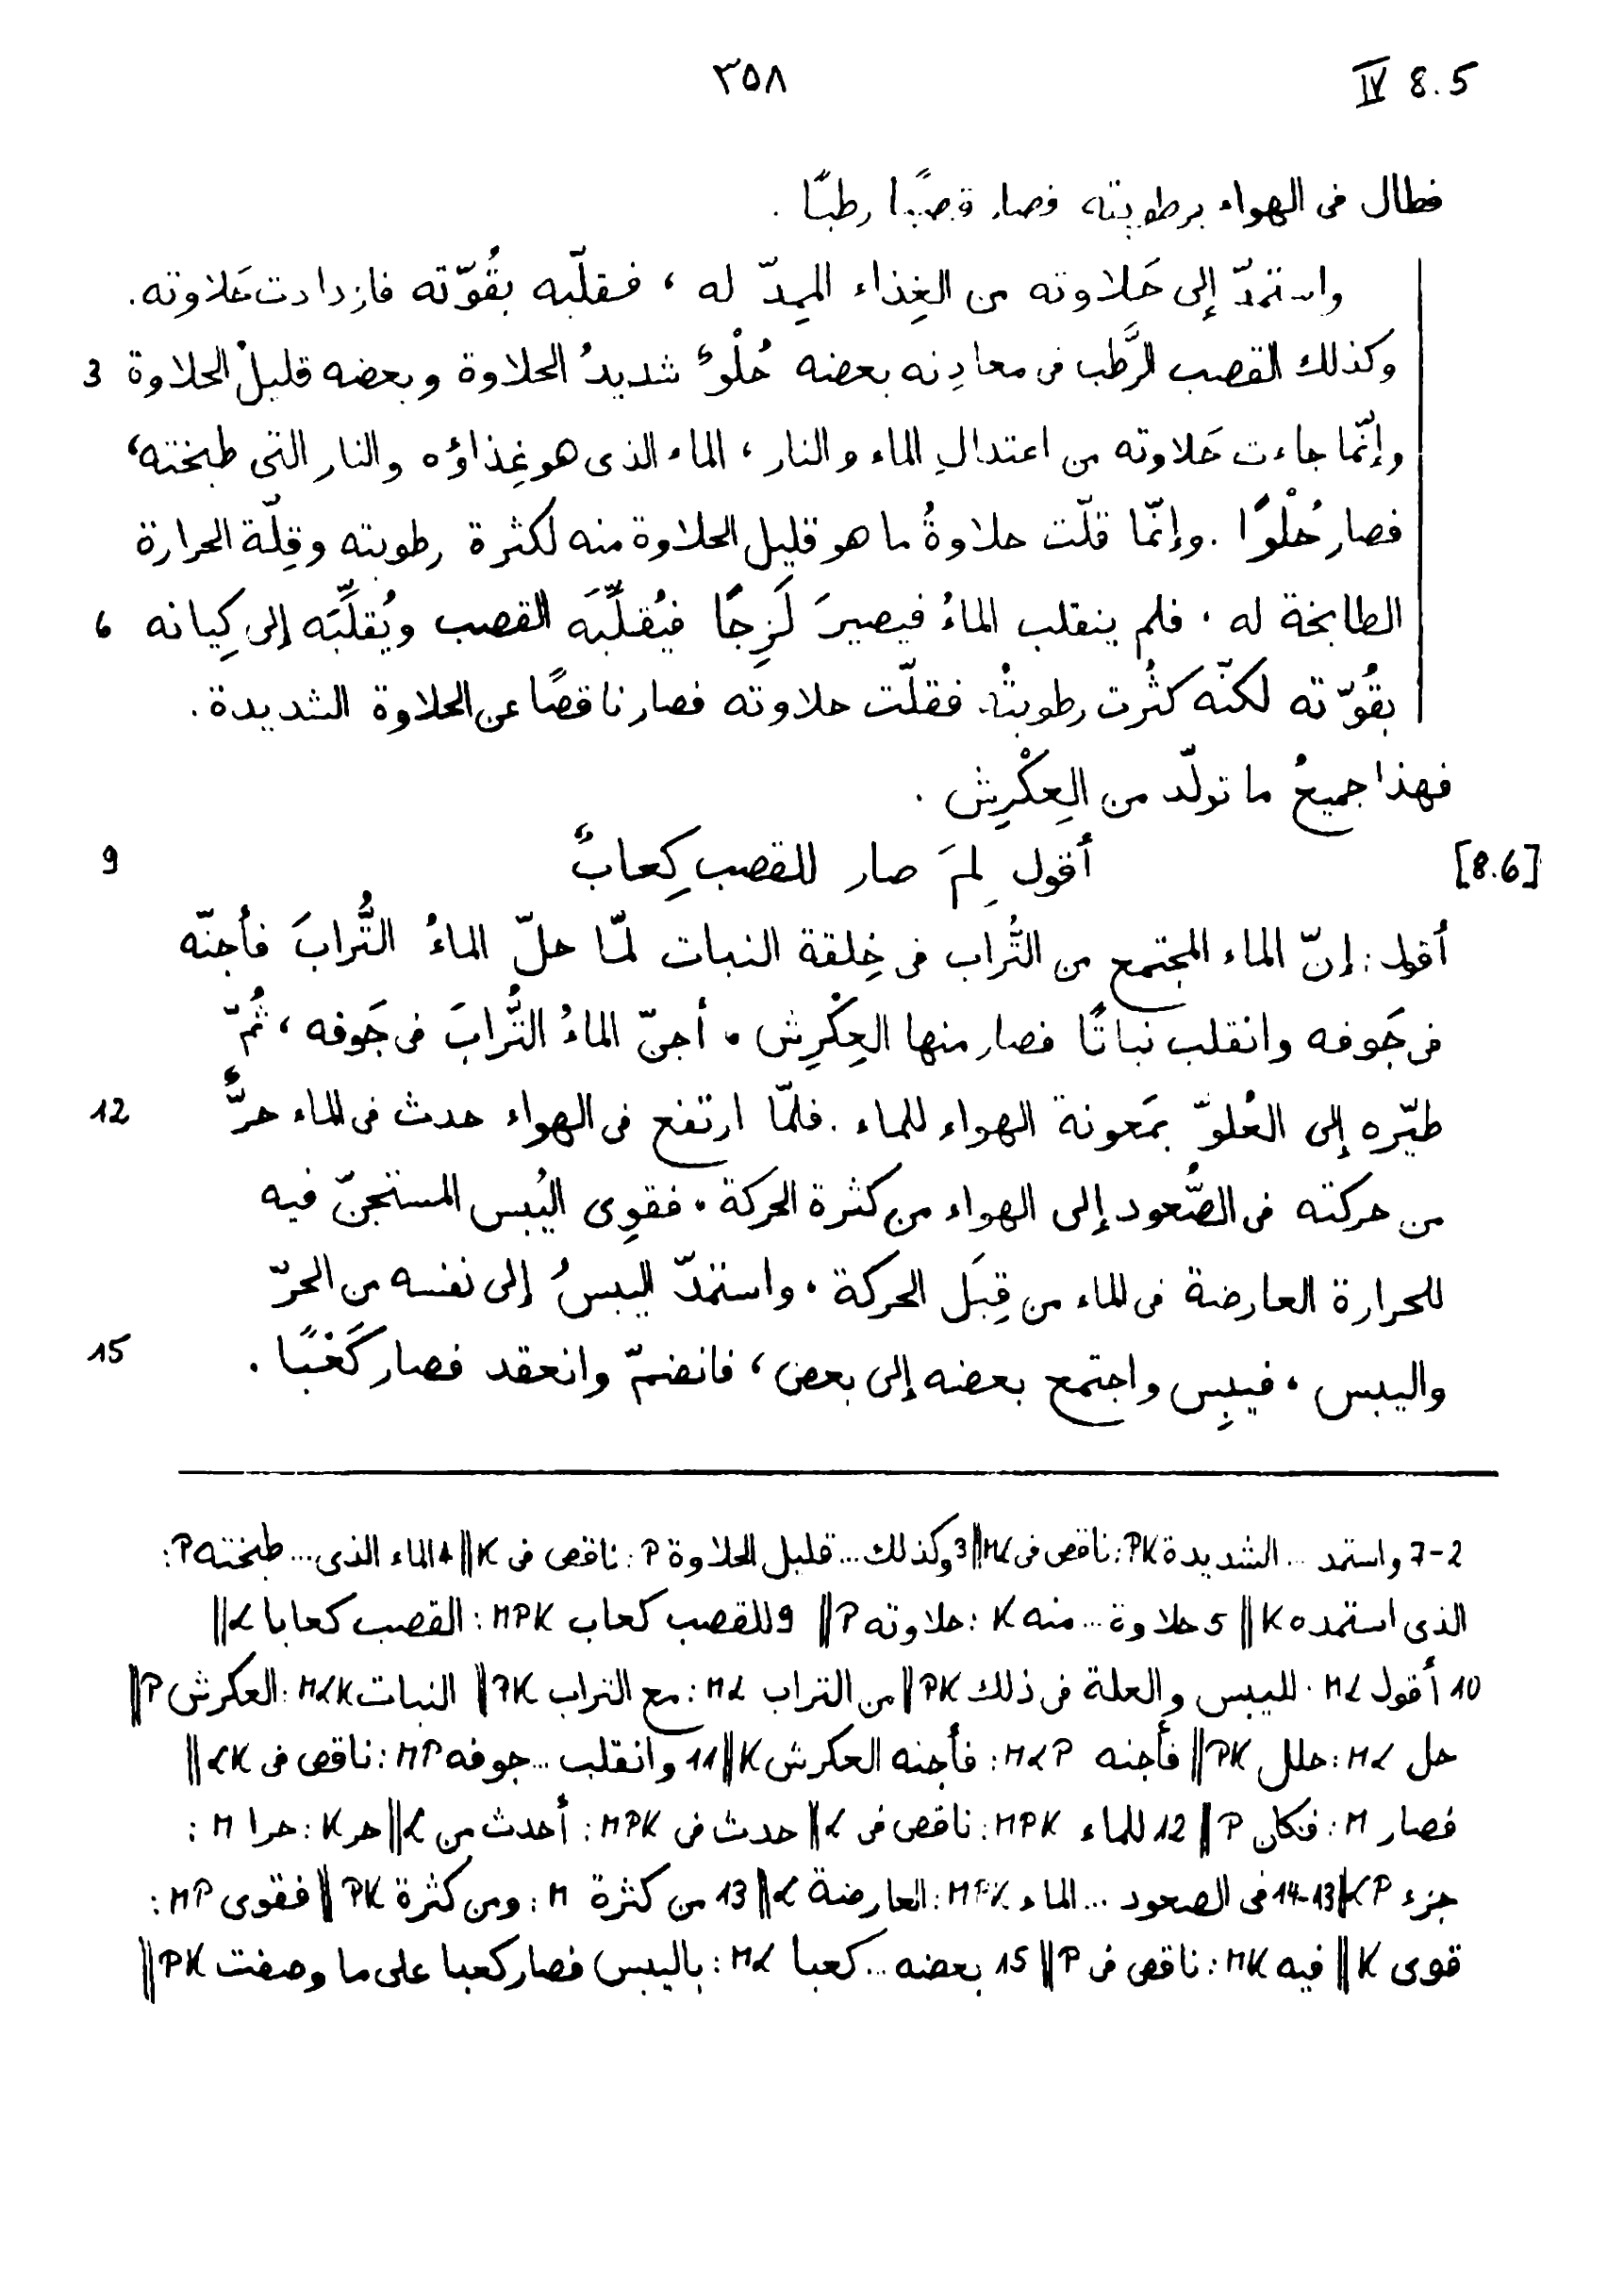 ٣٥٨ IV 8.5
فطال فى الهواء برطوبته فصار قصبًا رطبًا .
واستمدّ إلى حَلاوته من الغِذاء المِمدّ له ، فقلّبه بقُوّته فازدادت حَلاوته.
وكذلك القصب الرَّطب فى معادِنه بعضه حُلْوٌ شديدُ الحلاوة وبعضه قليلُ الحلاوة 3
وإنّما جاءت حَلاوته من اعتدالِ الماء والنار ، الماء الذى هو غِذاؤه والنار التى طبخته،
فصار حُلْوًا . وإنّما قلّت حلاوةُ ما هو قليل الحلاوة منه لكثرة رطوبته وقِلّة الحرارة
الطابخة له ، فلم ينقلب الماءُ فيصيرَ لَزِجًا فيُقلِّبَه القصب ويُقلِّبَه إلى كِيانه 6
بقُوّته لكنّه كثُرت رطوبتُه فقلّت حلاوته فصار ناقصًا عن الحلاوة الشديدة .
فهذا جميعُ ما تولّد من العِكْرِش .
[8.6] أقول لِمَ صار للقصب كِعابٌ 9
أقول : إنّ الماء المجتمع من التُّراب فى خِلقة النبات لمّا حلّ الماءُ التُّرابَ فأجنّه
فى جَوفه وانقلب نباتًا فصار منها العِكْرِش ، أجنّ الماءُ التُّرابَ فى جَوفه ، ثُمّ
طيّره إلى العُلوّ بمَعونة الهواء للماء . فلمّا ارتفع فى الهواء حدث فى الماء حرٌّ 12
من حركته فى الصُّعود إلى الهواء من كثرة الحركة ، فقوِى اليُبس المستجنّ فيه
للحرارة العارضة فى الماء من قِبَل الحركة ، واستمدّ اليبسُ إلى نفسه من الحرّ
واليبس ، فيبِس واجتمع بعضه إلى بعض ، فانضمّ وانعقد فصار كَعْبًا . 15
7-2 واستمد ... الشديدة PK : ناقص فى ML || 3 وكذلك ... قليل الحلاوة P : ناقص فى K || 4 الماء الذى ... طبخته P :
الذى استمده K || 5 حلاوة ... منه K : حلاوته P || 9 للقصب كعاب MPK : القصب كعابا L ||
10 أقول ML : لليبس والعلة فى ذلك PK || من التراب ML : مع التراب PK || النبات MLK : العكرش P ||
حل ML : حلل PK || فأجنه MLP : فأجنه العكرش K || 11 وانقلب ... جوفه MP : ناقص فى LK ||
فصار M : فكان P || 12 للماء MPK : ناقص فى L || حدث فى MPK : أحدث من L || حر K : حرا M :
جزء LP || 14-13 فى الصعود ... الماء MPK : العارضة L || 13 من كثرة M : ومن كثرة PK || فقوى MP :
قوى K || فيه MK : ناقص فى P || 15 بعضه ... كعبا ML : باليبس فصار كعبا على ما وصفت PK ||